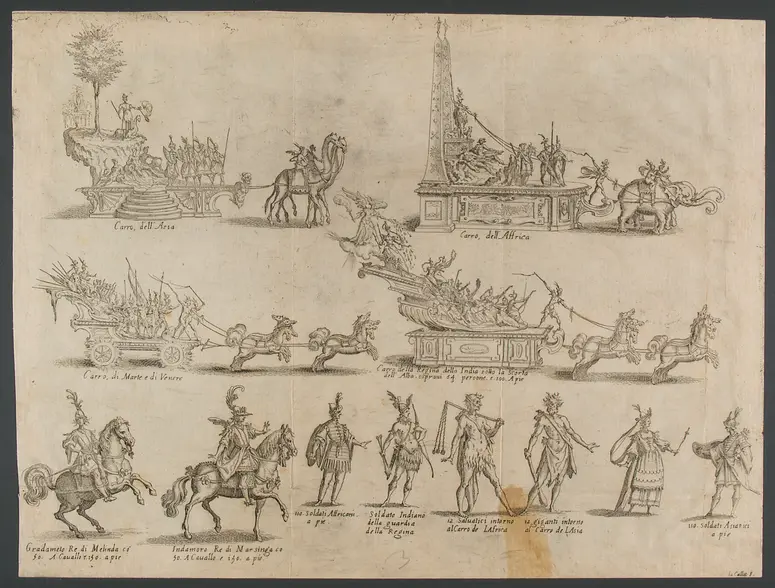 Carro, dell'Asia
Carro, dell'Affrica
Carro, di Marte e di Venere
Carro della Regina dello India sotto la Scorta
dell' Alba. sopravi 64 persone. e. 100. A pie
Gradameto Re di Melinda co
50. A Cavallo e. 150. a pie
Indamoro Re di Narsinga co
50. A Cavallo e 150. a pie
110. Soldati Affricani
a pie
Soldato Indiano
della guardia
della Regina
12 Salvatici intorno
al Carro de L'Africa
12. giganti intorno
al Carro de L'Asia
110. Soldati Asiatici
a pie
3
Ia Callot F.